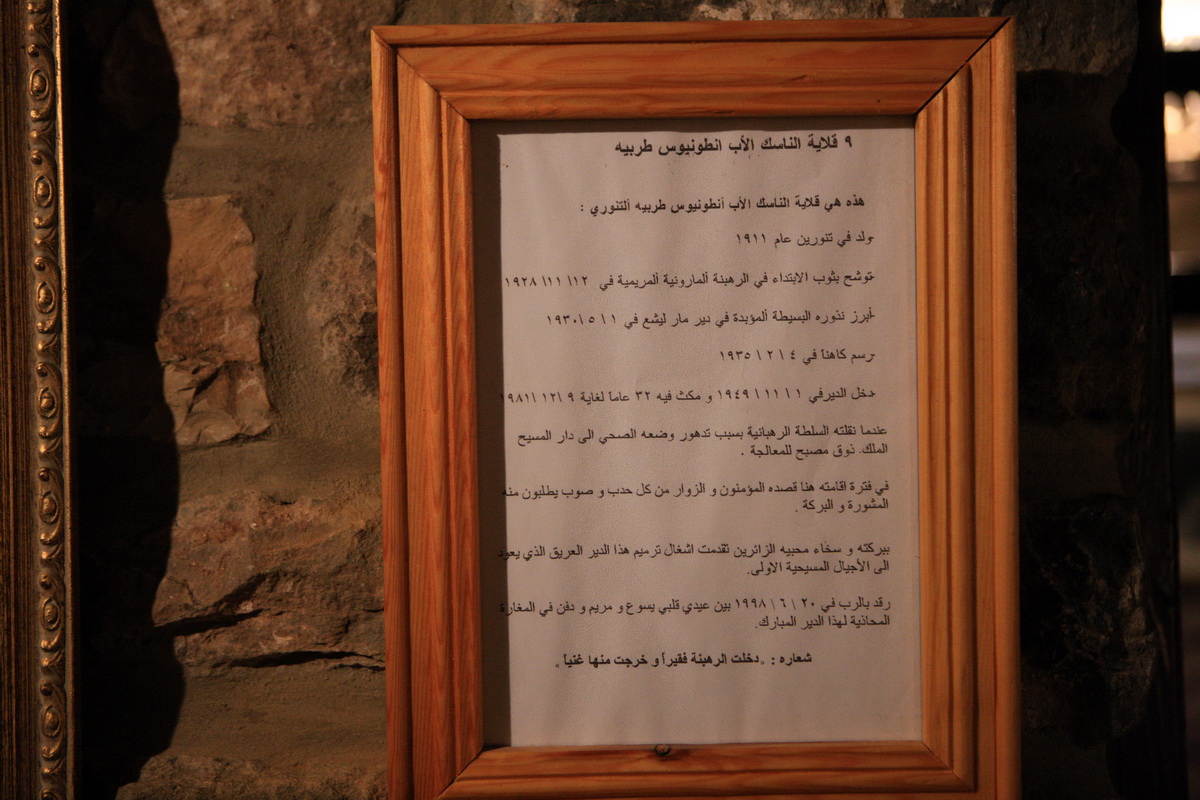 ٩ قلاية الناسك الأب انطونيوس طربيه
هذه هي قلاية الناسك الأب أنطونيوس طربيه ألتنوري :
-ولد في تنورين عام ١٩١١
-توشح بثوب الابتداء في الرهبنة ألمارونية ألمريمية في ١٢\ ١١\ ١٩٢٨
-أبرز نذوره البسيطة ألمؤبدة في دير مار ليشع في ١ \ ٥ \ ١٩٣٠
-رسم كاهناً في ٤ \ ٢ \ ١٩٣٥
-دخل الديرفي ١ \ ١١ \ ١٩٤٩ و مكث فيه ٣٢ عاماً لغاية ٩ \١٢ \١٩٨١
عندما نقلته السلطة الرهبانية بسبب تدهور وضعه الصحي الى دار المسيح
الملك. ذوق مصبح للمعالجة .
في فترة اقامته هنا قصده المؤمنون و الزوار من كل حدب و صوب يطلبون منه
المشورة و البركة .
ببركته و سخاء محبيه الزائرين تقدمت اشغال ترميم هذا الدير العريق الذي يعود
الى الأجيال المسيحية الاولى.
رقد بالرب في ٢٠ \ ٦ \ ١٩٩٨ بين عيدي قلبي يسوع و مريم و دفن في المغارة
المحاذية لهذا الدير المبارك.
شعاره : "دخلت الرهبنة فقيراً و خرجت منها غنياً "